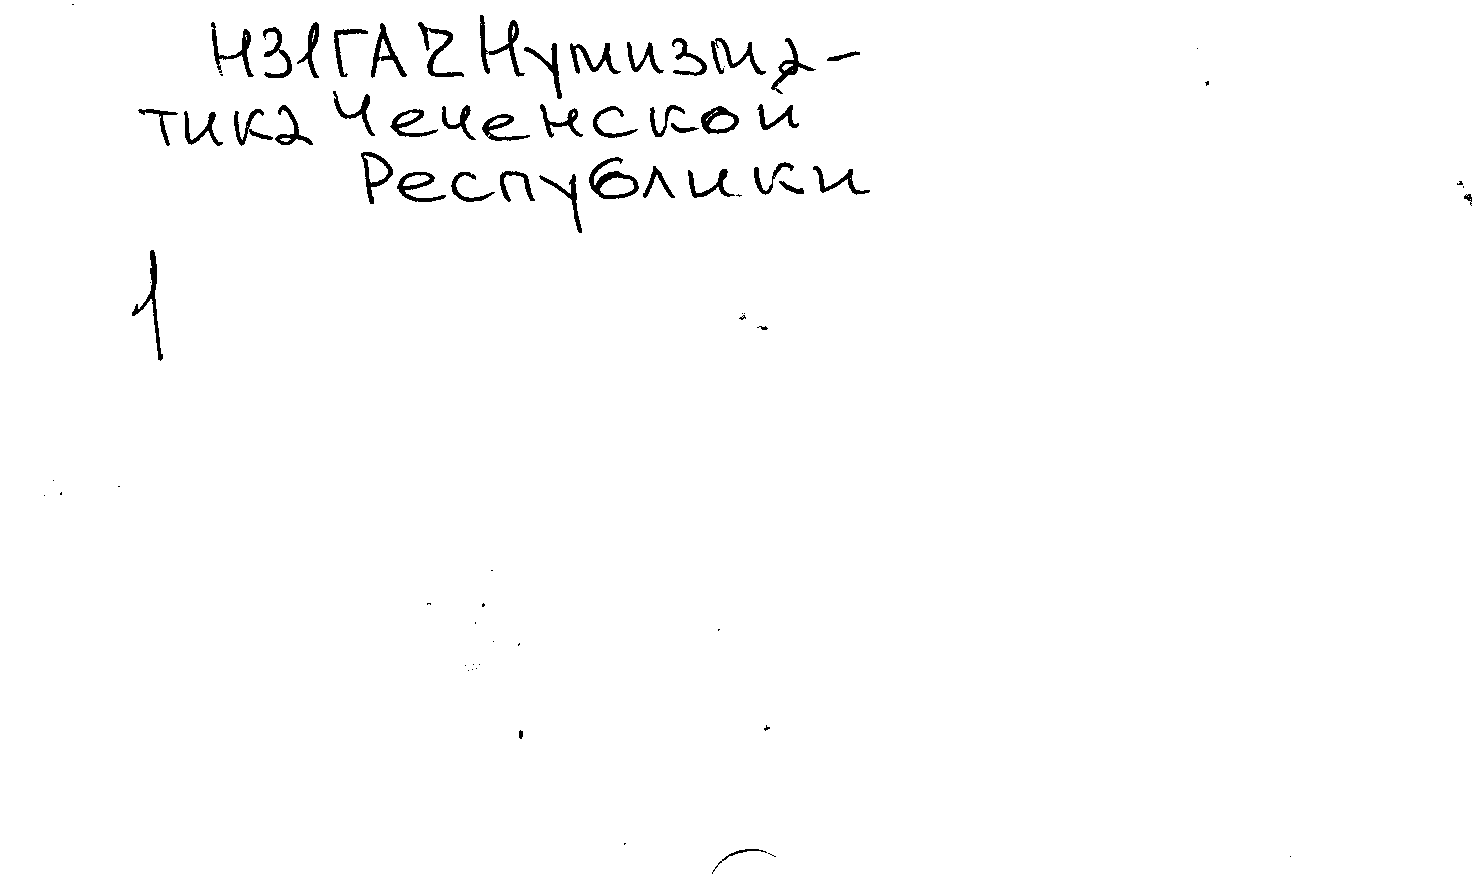 НЗ1ГАЧ Нумизма-
тика Чеченской
Республики
1